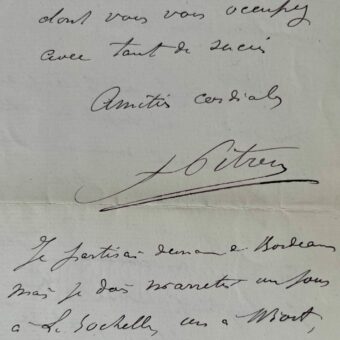 dont vous vous occupez
avec tant de succès
Amitiés cordiales
A Pitres
Je partirai demain à Bordeaux
mais je dois m'arreter un jour
à La Rochelle, un à Niort,